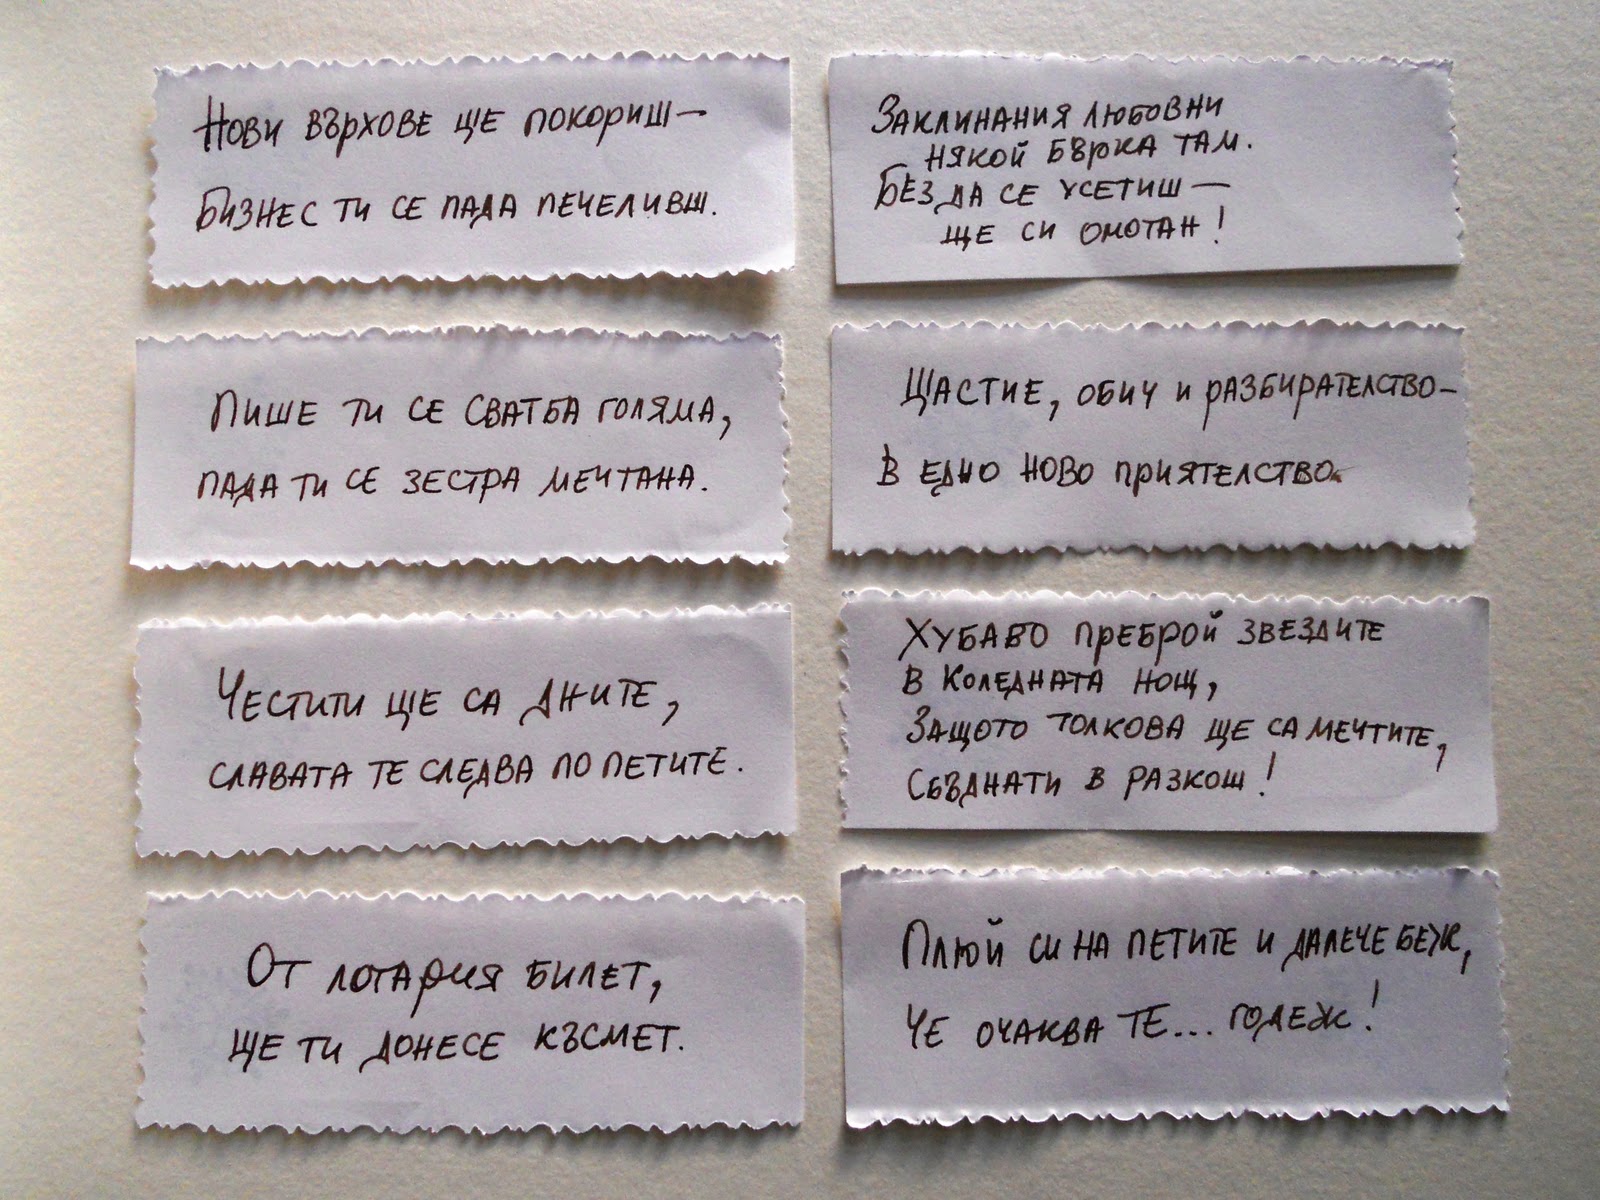 Нови върхове ще покориш—
Бизнес ти се пада печеливш.
Пише ти се сватба голяма,
пада ти се зестра мечтана.
Честити ще са дните,
славата те следва по петите.
От лотария билет,
ще ти донесе късмет.
Заклинания любовни
някой бърка там.
Без да се усетиш—
ще си омотан!
Щастие, обич и разбирателство—
в едно ново приятелство.
Хубаво преброй звездите
в Коледната нощ,
Защото толкова ще са мечтите,
сбъднати в разкош!
Плюй си на петите и далече беж,
че очаква те... годеж!